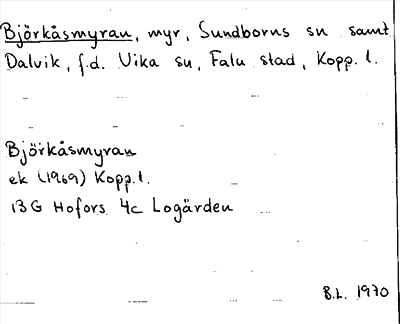 Björkåsmyran, myr, Sundborns sn samt
Dalvik, f.d. Vika sn, Falu stad, Kopp. l.
Björkåsmyran
ek (1969) Kopp. l.
13G Hofors 4c Logärden
B.L. 1970